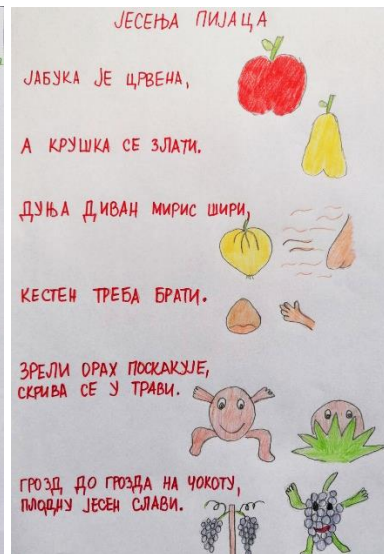 ЈЕСЕЊА ПИЈАЦА
ЈАБУКА ЈЕ ЦРВЕНА,
А КРУШКА СЕ ЗЛАТИ.
ДУЊА ДИВАН МИРИС ШИРИ,
КЕСТЕН ТРЕБА БРАТИ.
ЗРЕЛИ ОРАХ ПОСКАКУЈЕ,
СКРИВА СЕ У ТРАВИ.
ГРОЗД ДО ГРОЗДА НА ЧОКОТУ,
ПЛОДНУ ЈЕСЕН СЛАВИ.